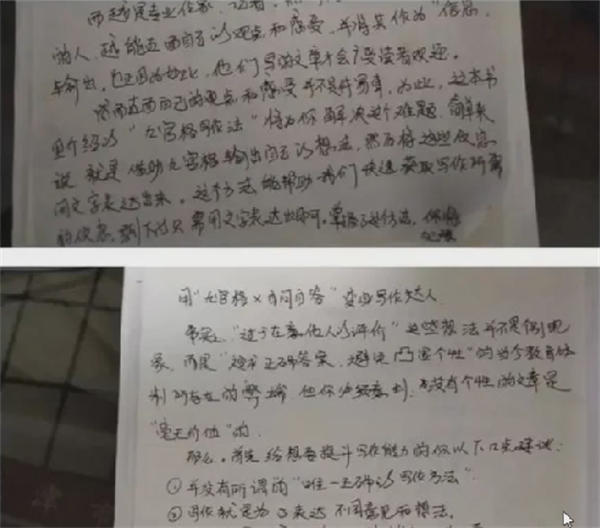 而越是专业作家、记者，
的人，越能直面自己的观点和感受，并将其作为“信息”
与输出，也正因为如此，他们写的文章才会广受读者欢迎。
然而直面自己的观点和感受并不是件易事，为此，这本书
里介绍的“九宫格写作法”将为你解决这个难题。简单来
说，就是借助九宫格输出自己的想法，然后将这些信息
用文字表达出来。这个方法能帮助我们快速获取写作所需
的信息，剩下的只需用文字表达出即可。掌握了这个方法，你将
用“九宫格×自问自答”变身写作达人
事实上“过于在意他人的评价”这些想法并不是个别现
象，而是“追求正确答案，避免凸显个性”的当今教育体
制所存在的弊端。但你必须意识到，没有个性的文章是
“毫无价值”的。
那么，首先给想要提升写作能力的你以下几点建议：
①并没有所谓的“唯一正确的写作方法”
②写作就是为了表达不同意见和想法。